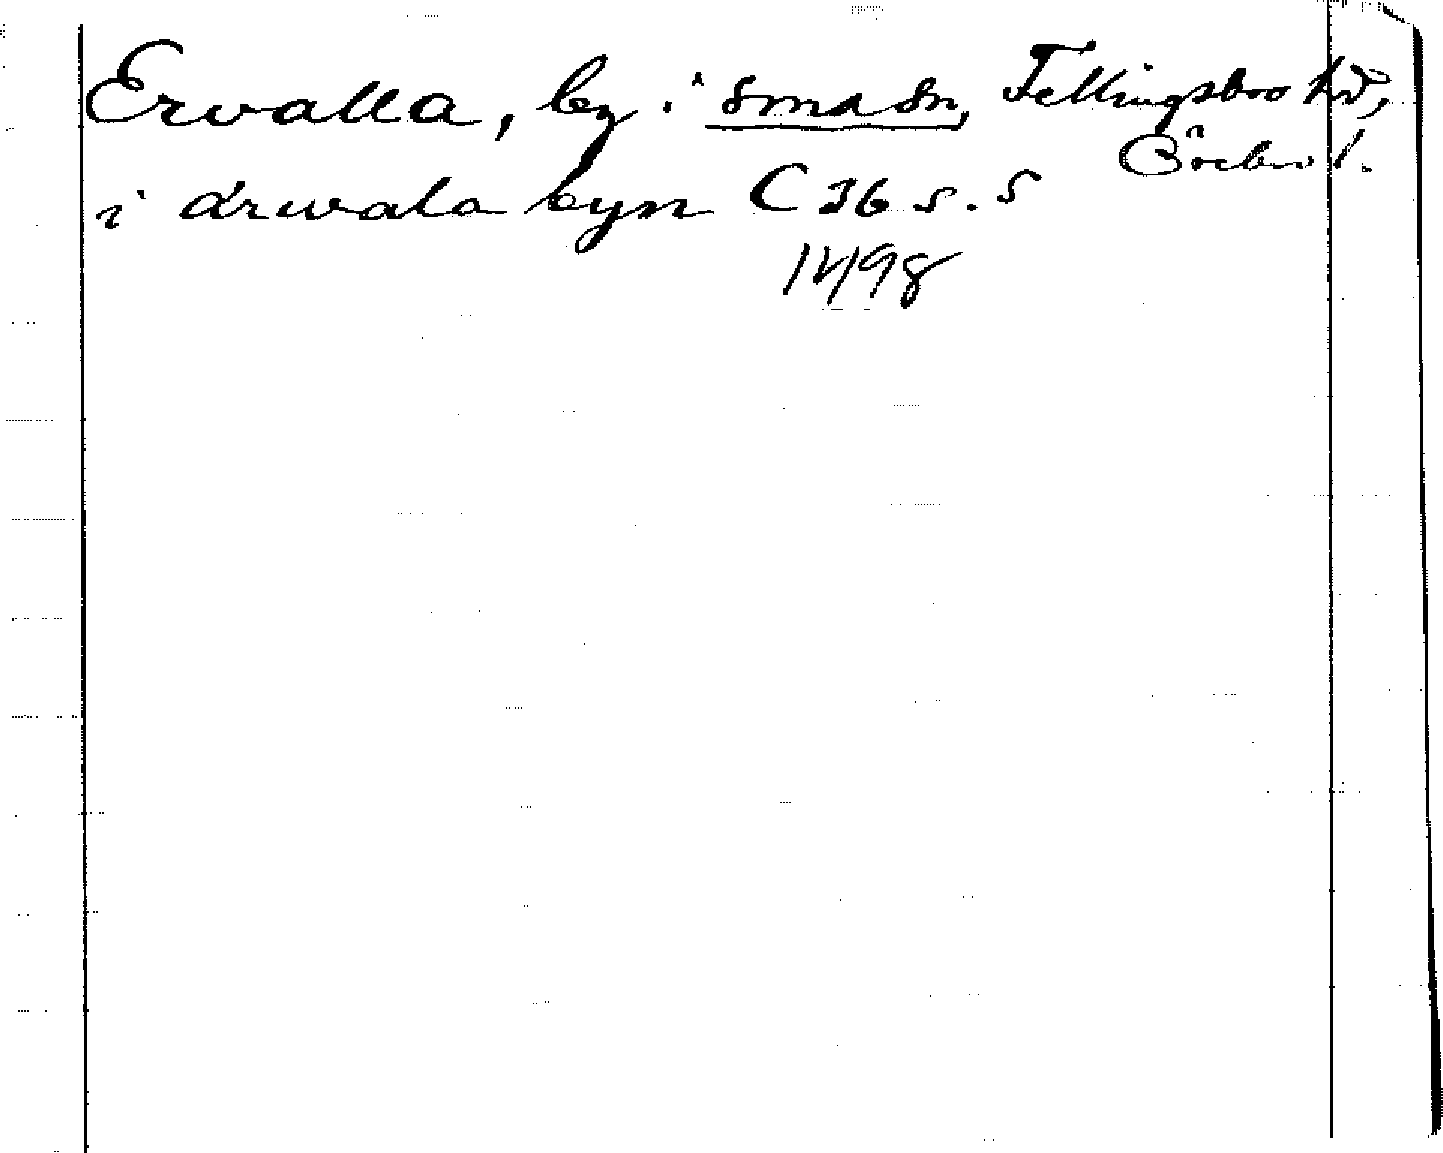 Ervalla, by i smd sn, Fellingsbro hd,
Örebro l.
i ärwala byn C 36 s. 5
1498